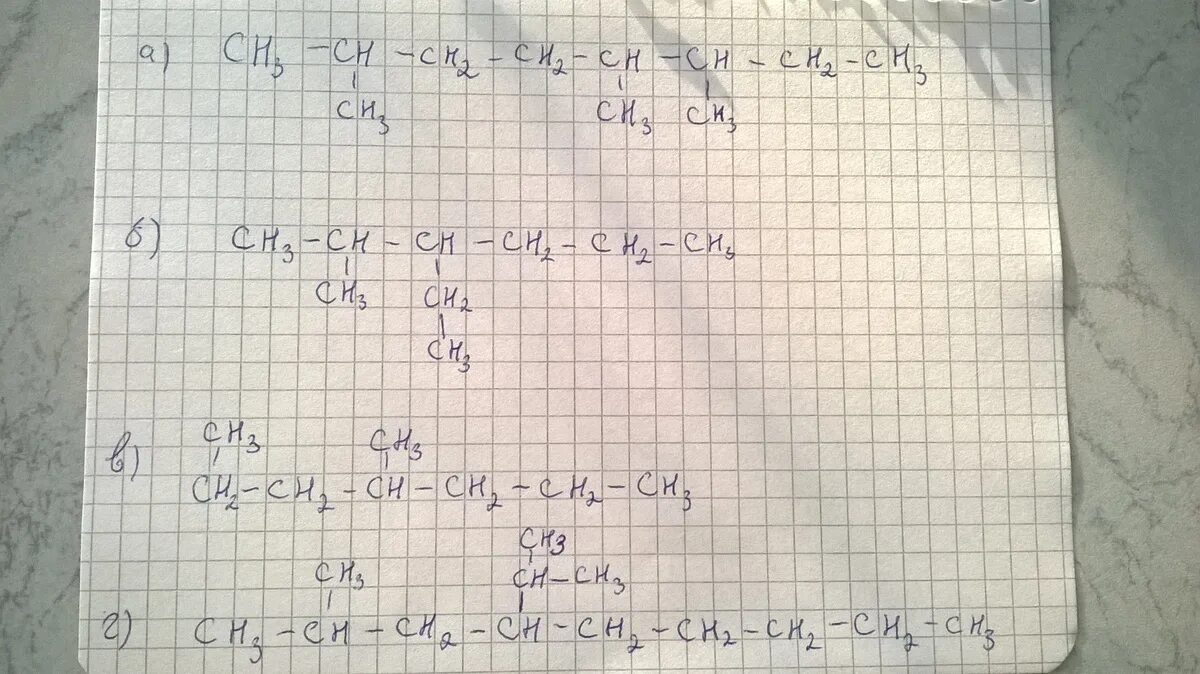 а) CH3 - CH - CH2 - CH2 - CH - CH - CH2 - CH3
CH3 CH3 CH3
б) CH3 - CH - CH - CH2 - CH2 - CH3
CH3 CH2
CH3
в) CH3 CH3
CH2 - CH2 - CH - CH2 - CH2 - CH3
CH3
CH3 CH - CH3
г) CH3 - CH - CH2 - CH - CH2 - CH2 - CH2 - CH2 - CH3